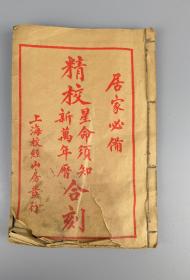 居家必備
精校星命須知新萬年曆合刻
上海校經山房發行